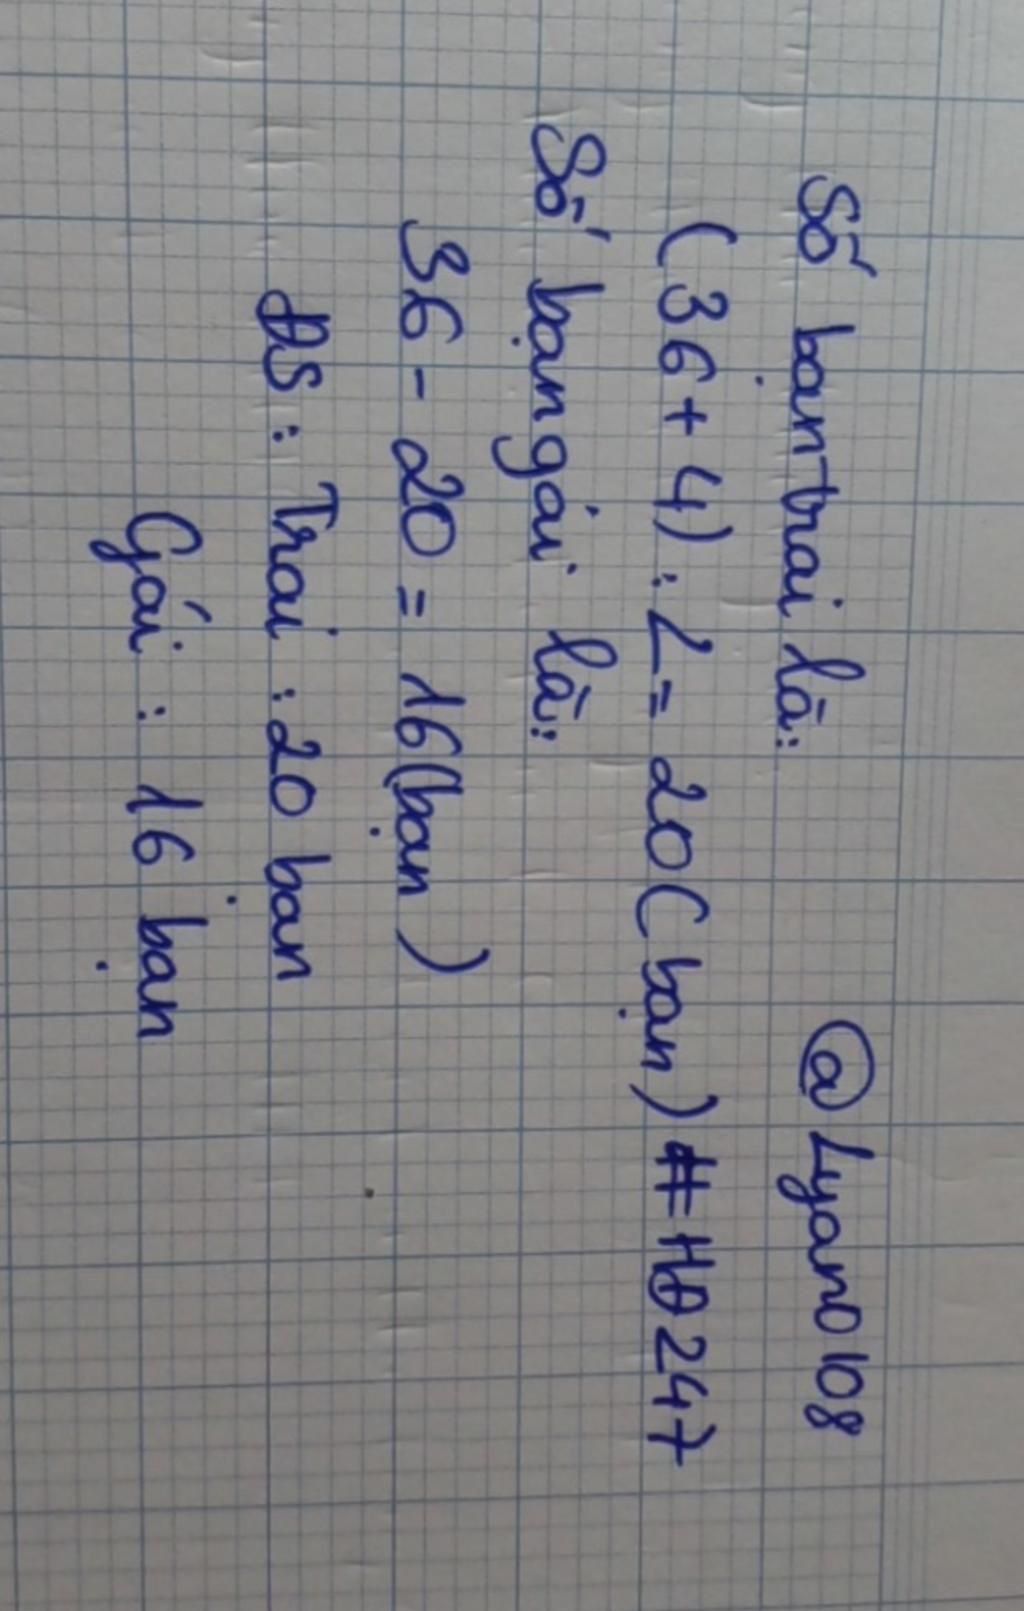 Số bạn trai là: @Lyano108
(36 + 4) : 2 = 20 (bạn) #HĐ247
Số bạn gái là:
36 - 20 = 16 (bạn)
ĐS : Trai : 20 bạn
Gái : 16 bạn